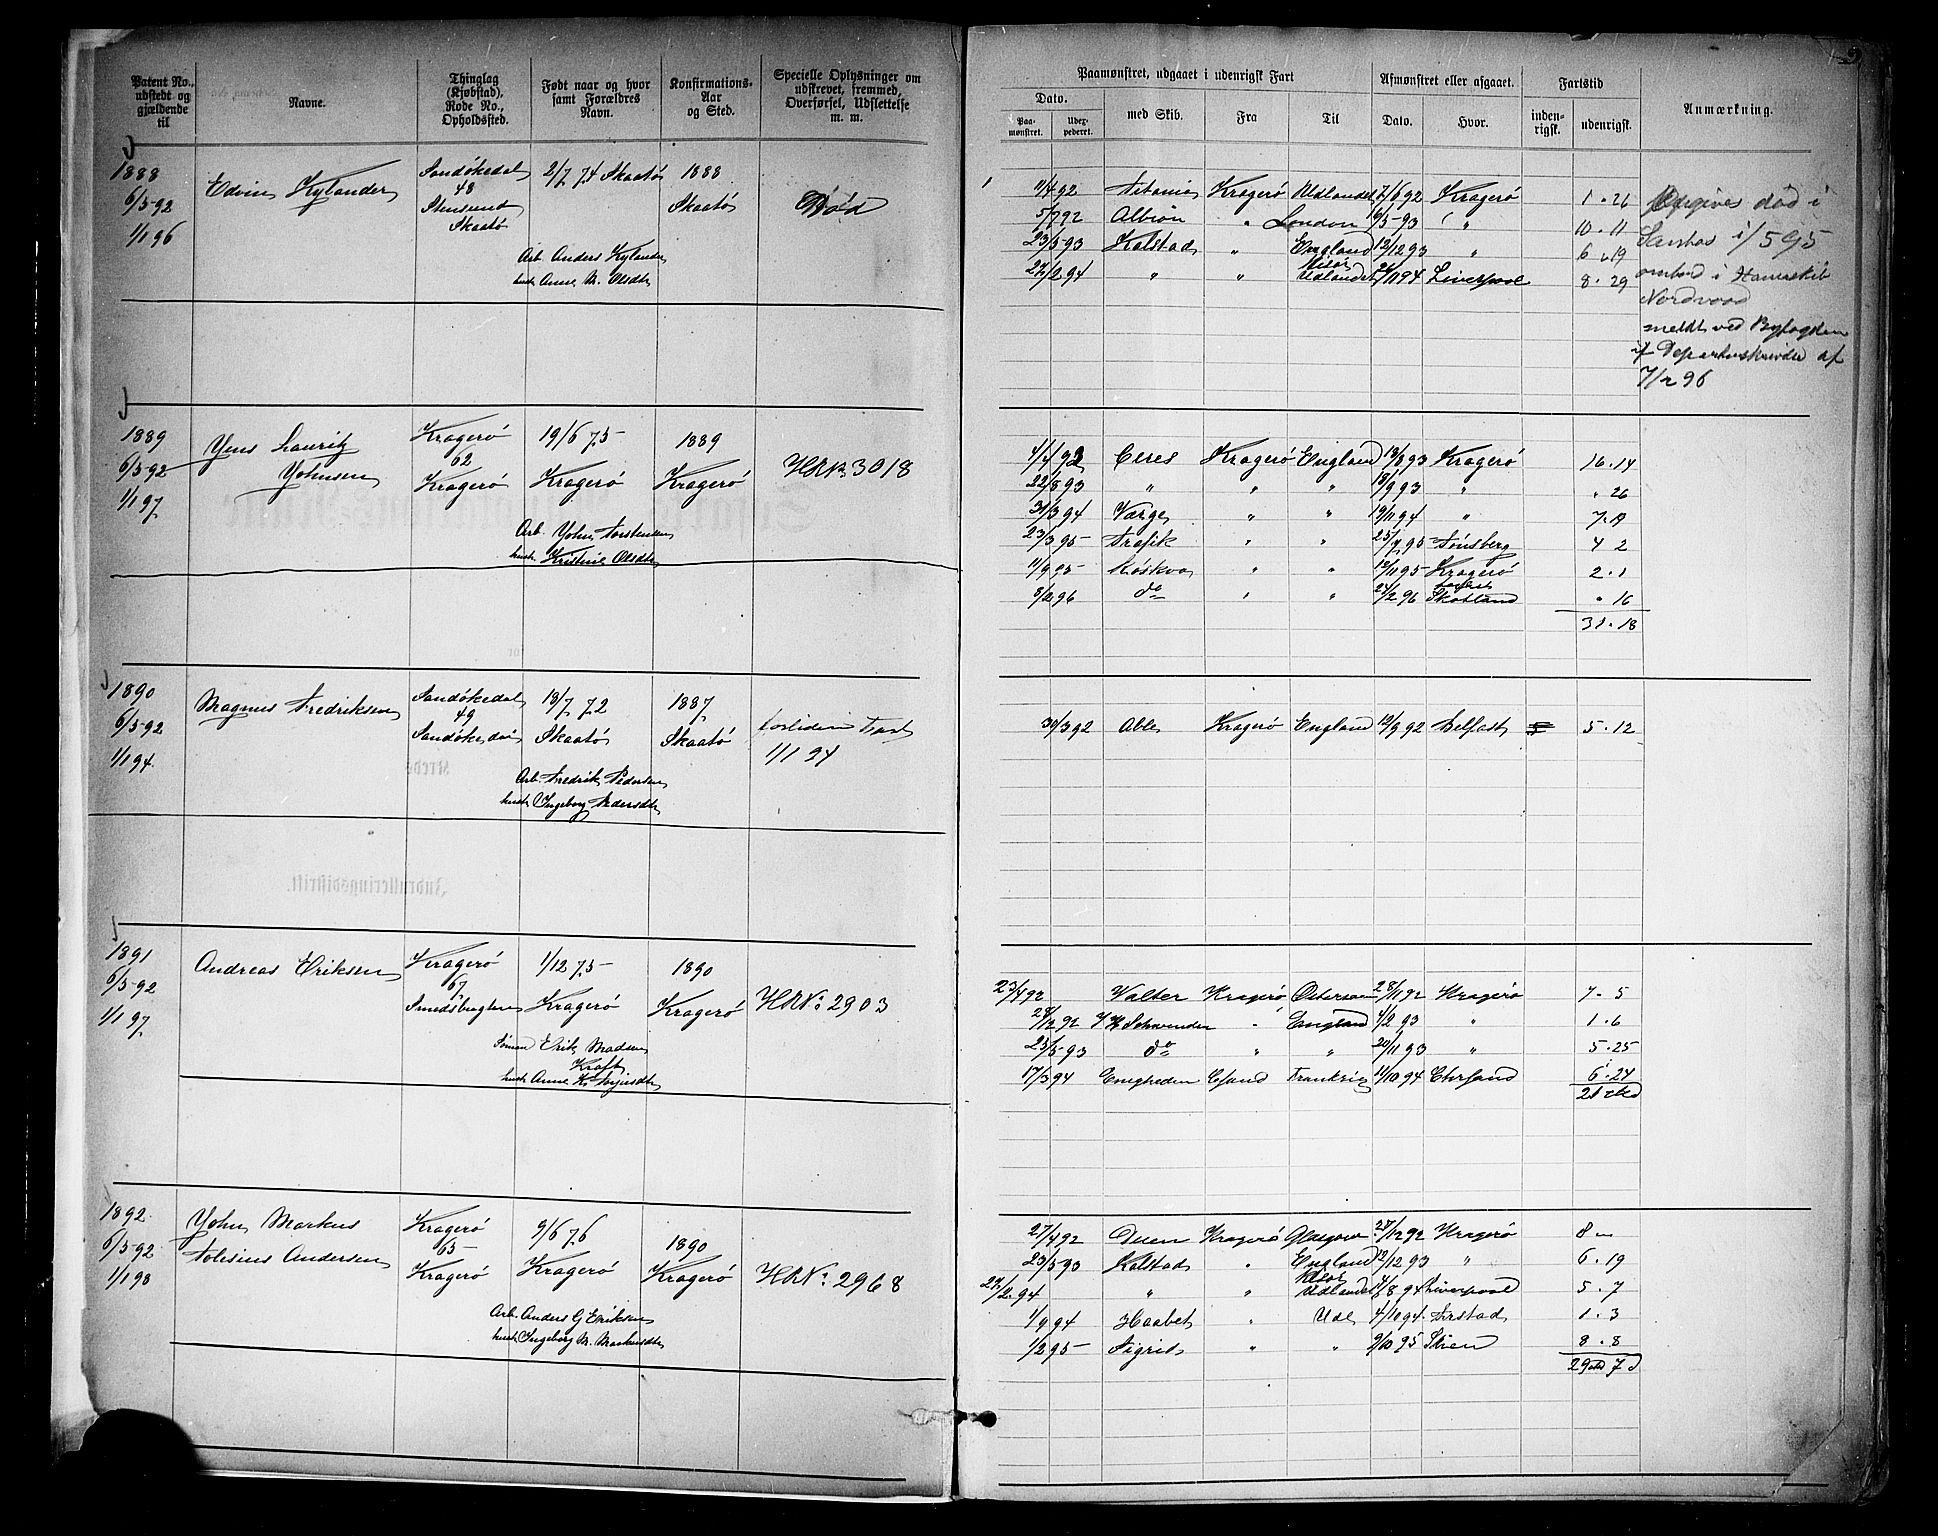 Patent No., udstedt og gjældende til
Navne.
Thinglag (Kjøbstad), Rode No., Opholdssted.
Født naar og hvor samt Forældres Navn.
Konfirmations-Aar og Sted.
Specielle Oplysninger om udskrevet, fremmed, Overførsel, Udslettelse m. m.
Paamønstret, udgaaet i udenrigsk Fart
Dato.
Paamønstret.
Udexpederet.
med Skib.
Fra
Til
Afmønstret eller afgaaet.
Dato.
Hvor.
Fartstid
indenrigsk.
udenrigsk.
Anmærkning.
1888
6/5 92
1/1 96
Edvin Kylander
Sandøkedal
48
Stensund
Skaatø
2/7 74 Skaatø
Arb. Anders Kylander
hustr. Anne M. Olsdtr
1888
Skaatø
Død
11/4 92 Titania Kragerø Udlandet 7/6 92 Kragerø 1 . 26
5/7 92 Albion " London 16/5 93 " " 10 . 11
23/5 93 Kalstad " England 12/12 93 " 6 . 19
27/2 94 " " Udlandet 24/11 94 Liverpool 8 . 29
Opgives død i
ombord i
meldt ved Byfogden
7/2 96
1889
6/5 92
1/1 97
Yens Lauritz
Yohnsen
Kragerø
62
Kragerø
19/6 75
Kragerø
Arb. Yohn Torstensen
hustr. Kristine Olsdtr
1889
Kragerø
HR No 3018
4/4 92 Ceres Kragerø England 18/8 93 Kragerø 16 . 14
22/8 93 " " " 18/9 93 " " 26
31/3 94 Varge " " 19/11 94 " 7 . 19
23/3 95 Trafik " " 25/7 95 Tønsberg 4 2
11/9 95 Moskva " " 12/11 95 Kragerø 2 . 1
8/2 96 do " " 24/2 96 Skotland " 16
31 . 18
1890
6/5 92
1/1 94
Magnus Fredriksen
Sandøkedal
49
Sandøkedal
18/7 72
Skaatø
Arb. Fredrik Pedersen
hustr. Ingeborg Pedersdtr
1887
Skaatø
1/1 94
30/3 92 Abb Kragerø England 12/9 92 Belfast 5 . 12
1891
6/5 92
1/1 97
Andreas Eriksen
Kragerø
67
Smedsbugten
1/12 75
Kragerø
Sømand Erik Madsen
Kraft
hustr. Anne K.
1890
Kragerø
HR No: 2903
23/4 92 Walter Kragerø Østersøen 28/11 92 Kragerø 7 . 5
28/12 92 Y H Schwender " England 4/2 93 " 1 . 6
25/5 93 do " " 20/11 93 " 5 . 25
17/3 94 Enigheden Csand Frankrig 11/10 94 Chrsand 6 . 24
21
1892
6/5 92
1/1 98
Yohn Markus
Tolesius Andersen
Kragerø
65
Kragerø
9/6 76
Kragerø
Arb. Anders G Eriksen
hustr. Ingeborg M. Markusdtr
1890
Kragerø
HR No: 2968
27/4 92 Duen Kragerø Glasgow 27/12 92 Kragerø 8 "
23/5 93 Kalstad " England 12/12 93 " 6 . 19
27/2 94 " " Udlandet 4/8 94 Liverpool 5 . 7
1/9 94 Haabet " Udl 4/10 94 1 . 3
1/2 95 Sigrid " " 9/10 95 Skien 8 . 8
29 md 7 d